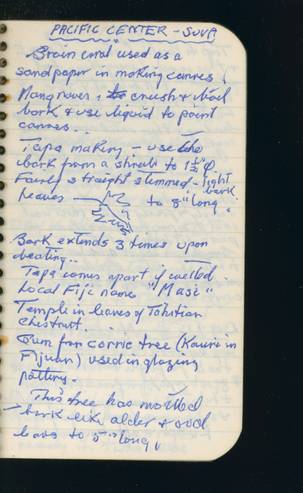 PACIFIC CENTER - SUVA
Brain coral used as a
sandpaper in making canoes.
Mangroves, to crush & boil
bark & use liquid to paint
canoes..
Tapa making - use the
bark from a shrub to 1½" φ
Fairly straight stemmed - light bark.
Leaves to 8" long.
Bark extends 3 times upon
beating..
Tapa comes apart if wetted.
Local Fiji name "Masi"
Temple in leaves of Tahitian
chestnut.
Gum from tree (Kauri in
Fijian) used in glazing
pottery.
This tree has mottled
bark like alder & oval
leaves to 5" long,